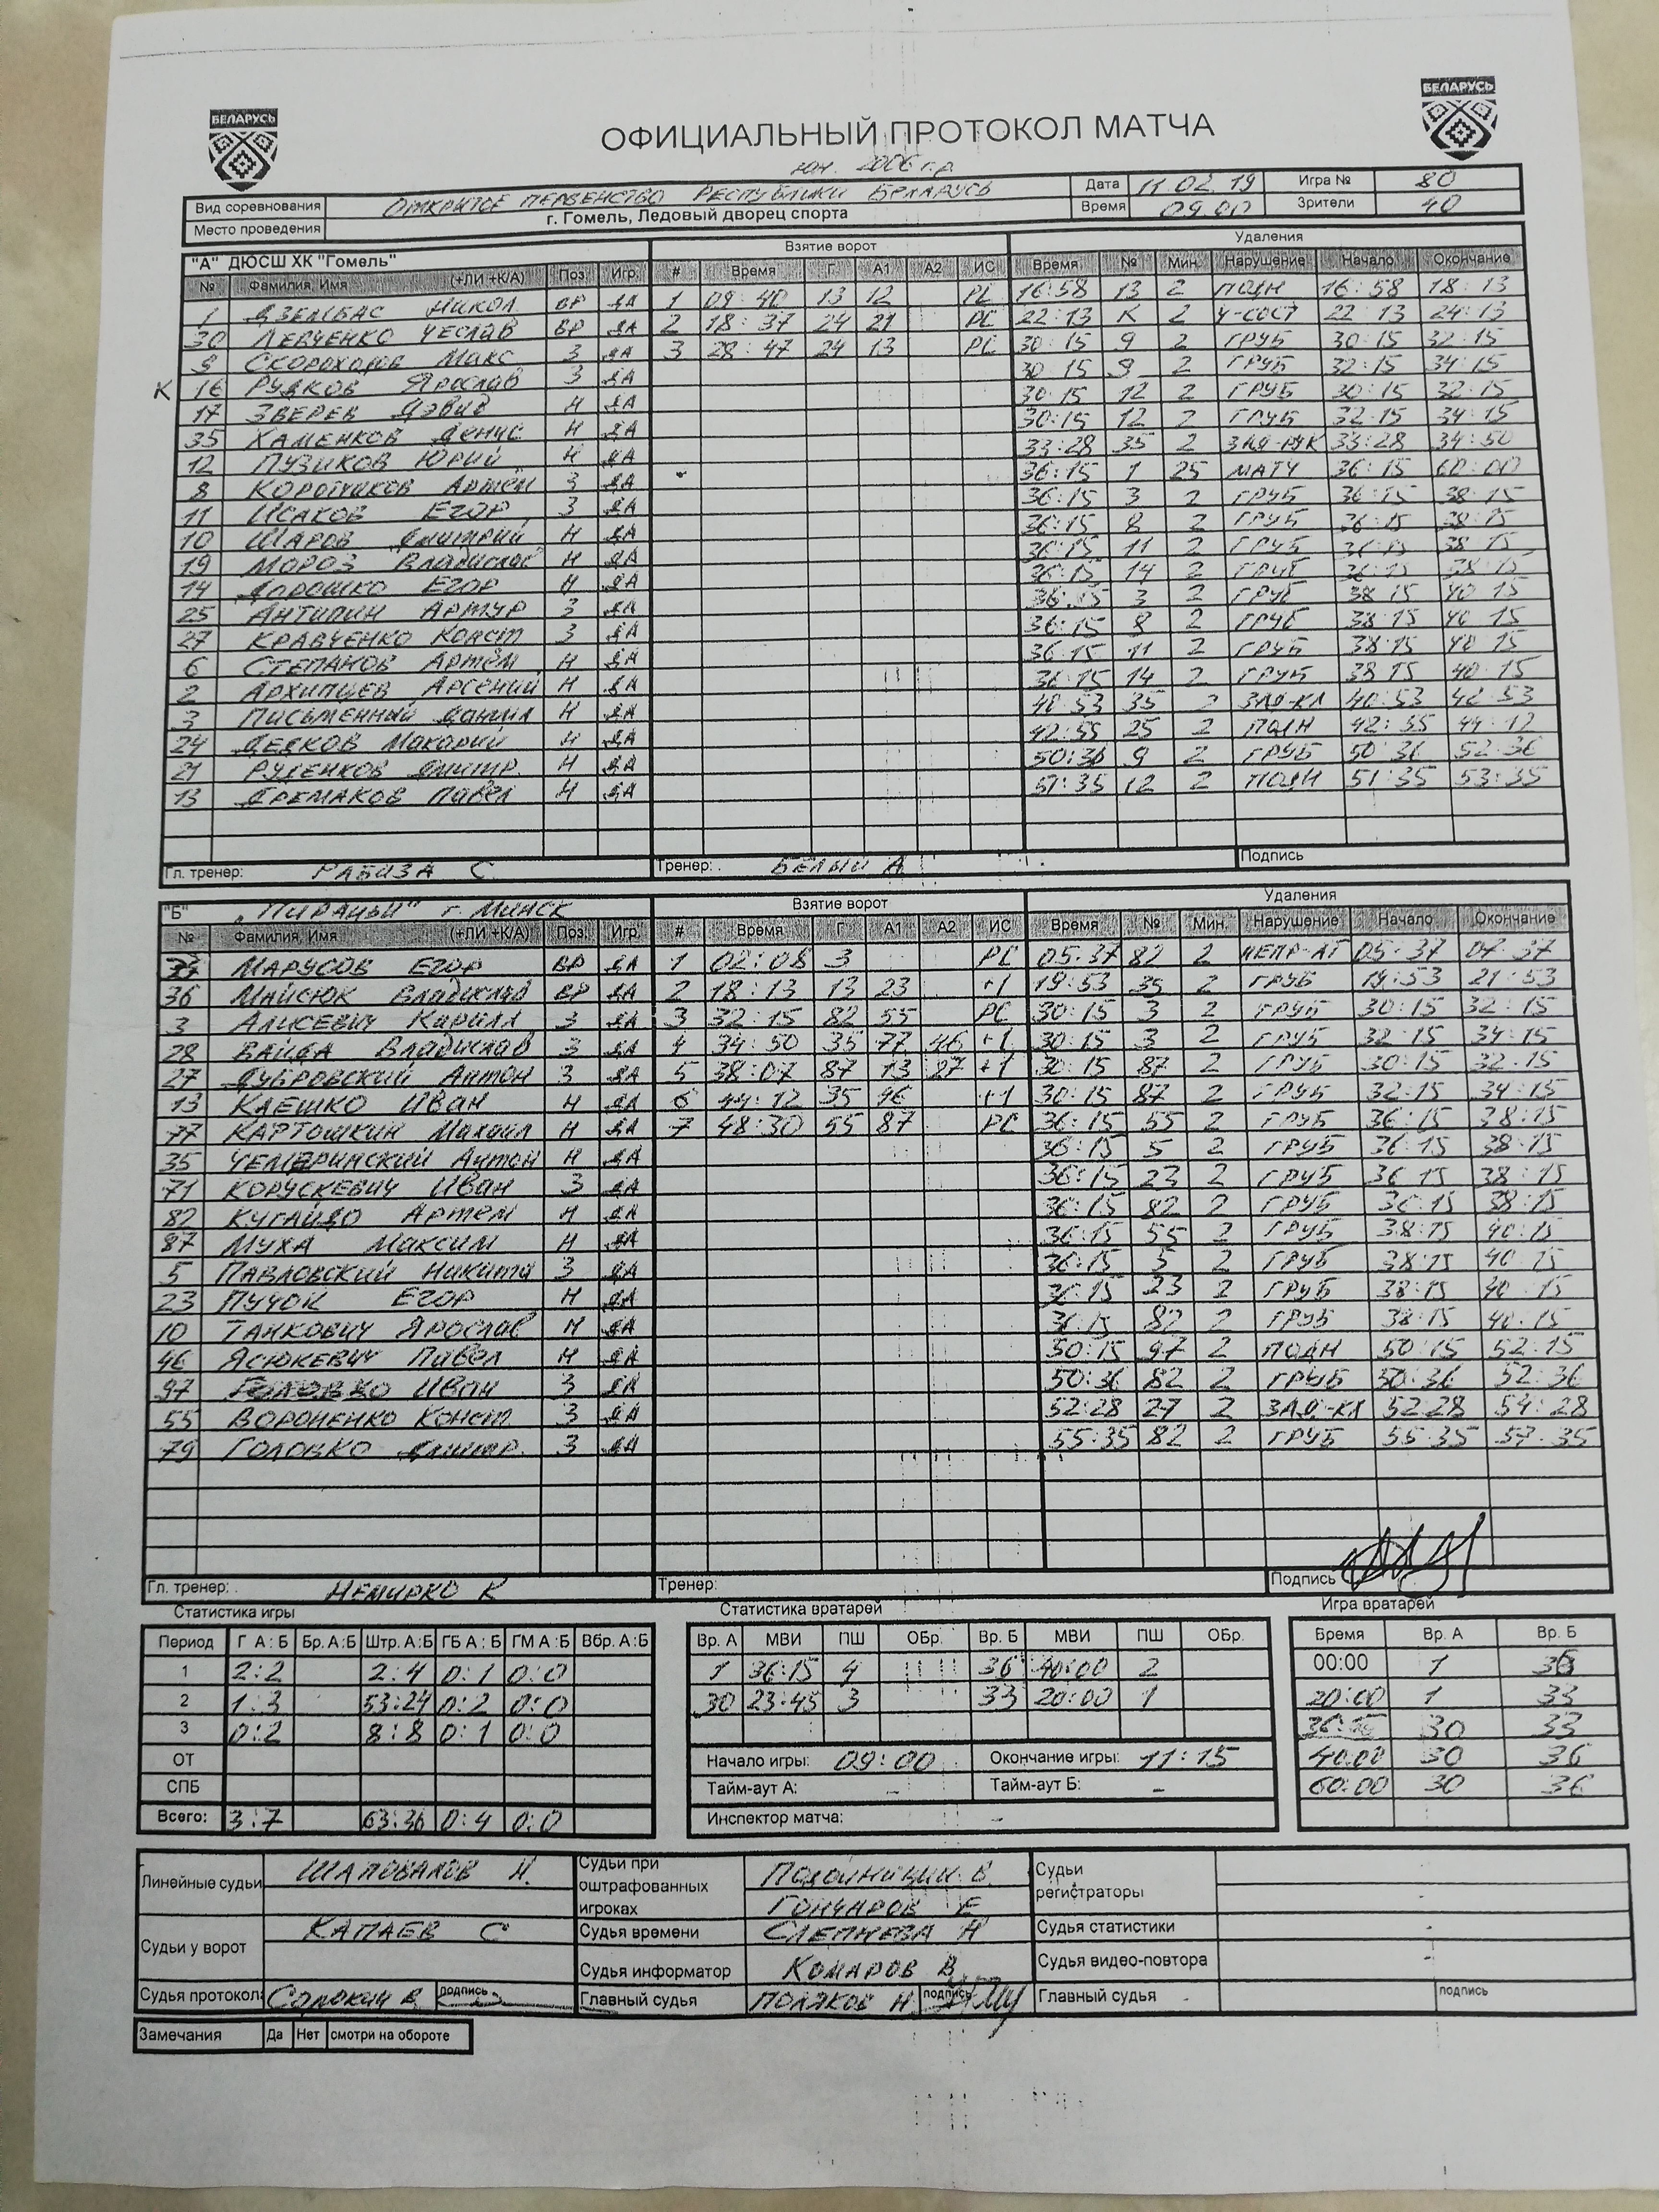 БЕЛАРУСЬ БЕЛАРУСЬ
ОФИЦИАЛЬНЫЙ ПРОТОКОЛ МАТЧА
юн. 2006 г.р.
Вид соревнования ОТКРЫТОЕ ПЕРВЕНСТВО РЕСПУБЛИКИ БЕЛАРУСЬ Дата 11.02.19 Игра № 80
Место проведения г. Гомель, Ледовый дворец спорта Время 09.00 Зрители 40
"А" ДЮСШ ХК "Гомель" Взятие ворот Удаления
№ Фамилия, Имя (+ЛИ +К/А) Поз. Игр. # Время Г А1 А2 ИС Время № Мин. Нарушение Начало Окончание
1 ДЗЕМБАС НИКОЛ ВР ДА 1 09:40 13 12 РС 16:58 13 2 ПОДН 16:58 18:13
30 ЛЕВЧЕНКО ЧЕСЛАВ ВР ДА 2 18:37 24 21 РС 22:13 К 2 Ч-СОСТ 22:13 24:13
9 СКОРОХОДОВ МАКС З ДА 3 28:47 24 13 РС 30:15 9 2 ГРУБ 30:15 32:15
К 16 РУДКОВ ЯРОСЛАВ З ДА 30:15 9 2 ГРУБ 32:15 34:15
17 ЗВЕРЕВ ДЭВИД Н ДА 30:15 12 2 ГРУБ 30:15 32:15
35 ХАМЕНКОВ ДЕНИС Н ДА 30:15 12 2 ГРУБ 32:15 34:15
12 ПУЗИКОВ ЮРИЙ Н ДА 33:28 35 2 ЗАД-РУК 33:28 34:50
8 КОРОТЧИКОВ АРТЁМ З ДА 36:15 1 25 МАТЧ 36:15 60:00
11 ИСАКОВ ЕГОР З ДА 36:15 3 2 ГРУБ 36:15 38:15
10 ШАРОВ ДМИТРИЙ Н ДА 36:15 8 2 ГРУБ 36:15 38:15
19 МОРОЗ ВЛАДИСЛАВ Н ДА 36:15 11 2 ГРУБ 36:15 38:15
14 ДОРОШКО ЕГОР Н ДА 36:15 14 2 ГРУБ 36:15 38:15
25 АНТИПИН АРТУР З ДА 36:15 3 2 ГРУБ 38:15 40:15
27 КРАВЧЕНКО КОНСТ З ДА 36:15 8 2 ГРУБ 38:15 40:15
6 СТЕПАНОВ АРТЁМ Н ДА 36:15 11 2 ГРУБ 38:15 40:15
2 АРХИПЦЕВ АРСЕНИЙ Н ДА 36:15 14 2 ГРУБ 38:15 40:15
3 ПИСЬМЕННЫЙ ДАНИИЛ Н ДА 40:53 35 2 ЗАД-КЛ 40:53 42:53
24 ДЕДКОВ МАКАРИЙ Н ДА 42:55 25 2 ПОДН 42:55 44:12
21 РУДЕНКОВ ДМИТР. Н ДА 50:36 9 2 ГРУБ 50:36 52:36
13 ЕРЕМАКОВ ПАВЕЛ Н ДА 51:35 12 2 ПОДН 51:35 53:35
Гл. тренер: РАБИЗА С Тренер: БЕЛЫЙ А Подпись
"Б" "ПИРАНЬИ" г. МИНСК Взятие ворот Удаления
№ Фамилия, Имя (+ЛИ +К/А) Поз. Игр. # Время Г А1 А2 ИС Время № Мин. Нарушение Начало Окончание
33 МАРУСОВ ЕГОР ВР ДА 1 02:08 3 РС 05:37 82 2 НЕПР-АТ 05:37 07:37
36 МАЙСЮК ВЛАДИСЛАВ ВР ДА 2 18:13 13 23 +1 19:53 35 2 ГРУБ 19:53 21:53
3 АЛИСЕВИЧ КИРИЛЛ З ДА 3 32:15 82 55 РС 30:15 3 2 ГРУБ 30:15 32:15
28 ВАЙДА ВЛАДИСЛАВ З ДА 4 34:50 35 77 46 +1 30:15 3 2 ГРУБ 32:15 34:15
27 ДУБРОВСКИЙ АНТОН З ДА 5 38:07 87 13 27 +1 30:15 87 2 ГРУБ 30:15 32:15
13 КЛЕШКО ИВАН Н ДА 6 44:12 35 46 +1 30:15 87 2 ГРУБ 32:15 34:15
77 КАРТОШКИН МИХАИЛ Н ДА 7 48:30 55 87 РС 36:15 55 2 ГРУБ 36:15 38:15
35 ЧЕМЕРИНСКИЙ АНТОН Н ДА 36:15 5 2 ГРУБ 36:15 38:15
71 КОРУСКЕВИЧ ИВАН З ДА 36:15 23 2 ГРУБ 36:15 38:15
82 КУГАЙДО АРТЕМ Н ДА 36:15 82 2 ГРУБ 36:15 38:15
87 МУХА МАКСИМ Н ДА 36:15 55 2 ГРУБ 38:15 40:15
5 ПАВЛОВСКИЙ НИКИТА З ДА 36:15 5 2 ГРУБ 38:15 40:15
23 ПУЧОК ЕГОР Н ДА 36:15 23 2 ГРУБ 38:15 40:15
10 ТАНКОВИЧ ЯРОСЛАВ Н ДА 36:15 82 2 ГРУБ 38:15 40:15
46 ЯСЮКЕВИЧ ПАВЕЛ Н ДА 50:15 97 2 ПОДН 50:15 52:15
97 ГОЛОВКО ИВАН З ДА 50:36 82 2 ГРУБ 50:36 52:36
55 ВОРОНЕНКО КОНСТ. З ДА 52:28 27 2 ЗАД-КЛ 52:28 54:28
79 ГОЛОВКО ДМИТР. З ДА 55:35 82 2 ГРУБ 55:35 57:35
Гл. тренер: НЕМИРКО К Тренер: Подпись
Статистика игры Статистика вратарей Игра вратарей
Период Г А:Б Бр. А:Б Штр. А:Б ГБ А:Б ГМ А:Б Вбр. А:Б Вр. А МВИ ПШ ОБр. Вр. Б МВИ ПШ ОБр. Время Вр. А Вр. Б
1 2:2 2:4 0:1 0:0 1 36:15 4 36 40:00 2 00:00 1 36
2 1:3 53:24 0:2 0:0 30 23:45 3 33 20:00 1 20:00 1 33
3 0:2 8:8 0:1 0:0 36:15 30 33
ОТ Начало игры: 09:00 Окончание игры: 11:15 40:00 30 36
СПБ Тайм-аут А: - Тайм-аут Б: - 60:00 30 36
Всего: 3:7 63:36 0:4 0:0 Инспектор матча: -
Линейные судьи ШАПОВАЛОВ Судьи при оштрафованных игроках ПОДОЙНИЦИН В. Судьи регистраторы
ГОНЧАРОВ Е
Судьи у ворот КАПАЕВ С Судья времени СЛЕПНЕВА Н Судья статистики -
Судья информатор КОМАРОВ В Судья видео-повтора -
Судья протокола Сорокин В. подпись Главный судья ПОЛЯКОВ Н подпись Главный судья подпись
Замечания Да Нет смотри на обороте